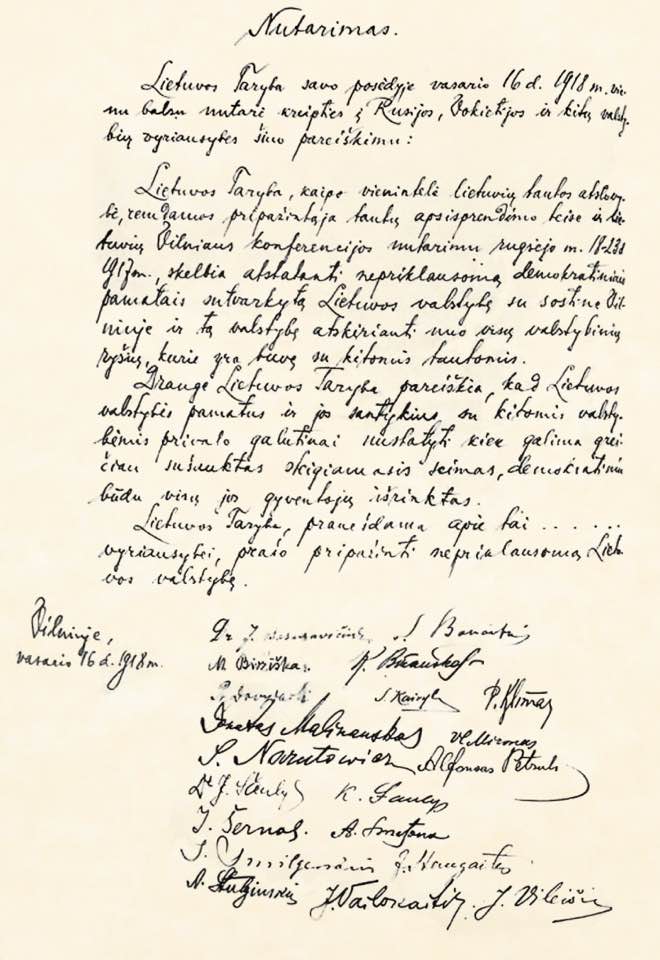 Nutarimas.
Lietuvos Taryba savo posėdyje vasario 16 d. 1918 m. vie-
nu balsu nutarė kreipties į Rusijos, Vokietijos ir kitų valsty-
bių vyriausybes šiuo pareiškimu:
Lietuvos Taryba, kaipo vienintelė lietuvių tautos atstovy-
bė, remdamos pripažintąja tautų apsisprendimo teise ir lie-
tuvių Vilniaus konferencijos nutarimu rugsėjo m. 18-23 d
1917 m., skelbia atstatanti nepriklausomą demokratiniais
pamatais sutvarkytą Lietuvos valstybę su sostine Vil-
niuje ir tą valstybę atskirianti nuo visų valstybinių
ryšių, kurie yra buvę su kitomis tautomis.
Drauge Lietuvos Taryba pareiškia, kad Lietuvos
valstybės pamatus ir jos santykius su kitomis valsty-
bėmis privalo galutinai nustatyti kiek galima grei-
čiau sušauktas steigiamasis seimas, demokratiniu
būdu visų jos gyventojų išrinktas.
Lietuvos Taryba, pranešdama apie tai . . . . . .
vyriausybei, prašo pripažinti nepriklausomą Lietu-
vos valstybę.
Vilniuje,
vasario 16 d. 1918 m.
Dr. J. Basanavičius S. Banaitis
M. Biržiška K. Bizauskas
S. Kairys P. Klimas
Donatas Malinauskas Vl. Mironas
S. Narutowicz Alfonsas Petrulis
Dr J. Šaulys K. Šaulys
J. Šernas A. Smetona
J. Smilgevičius J. Staugaitis
A. Stulginskis J. Vailokaitis J. Vileišis